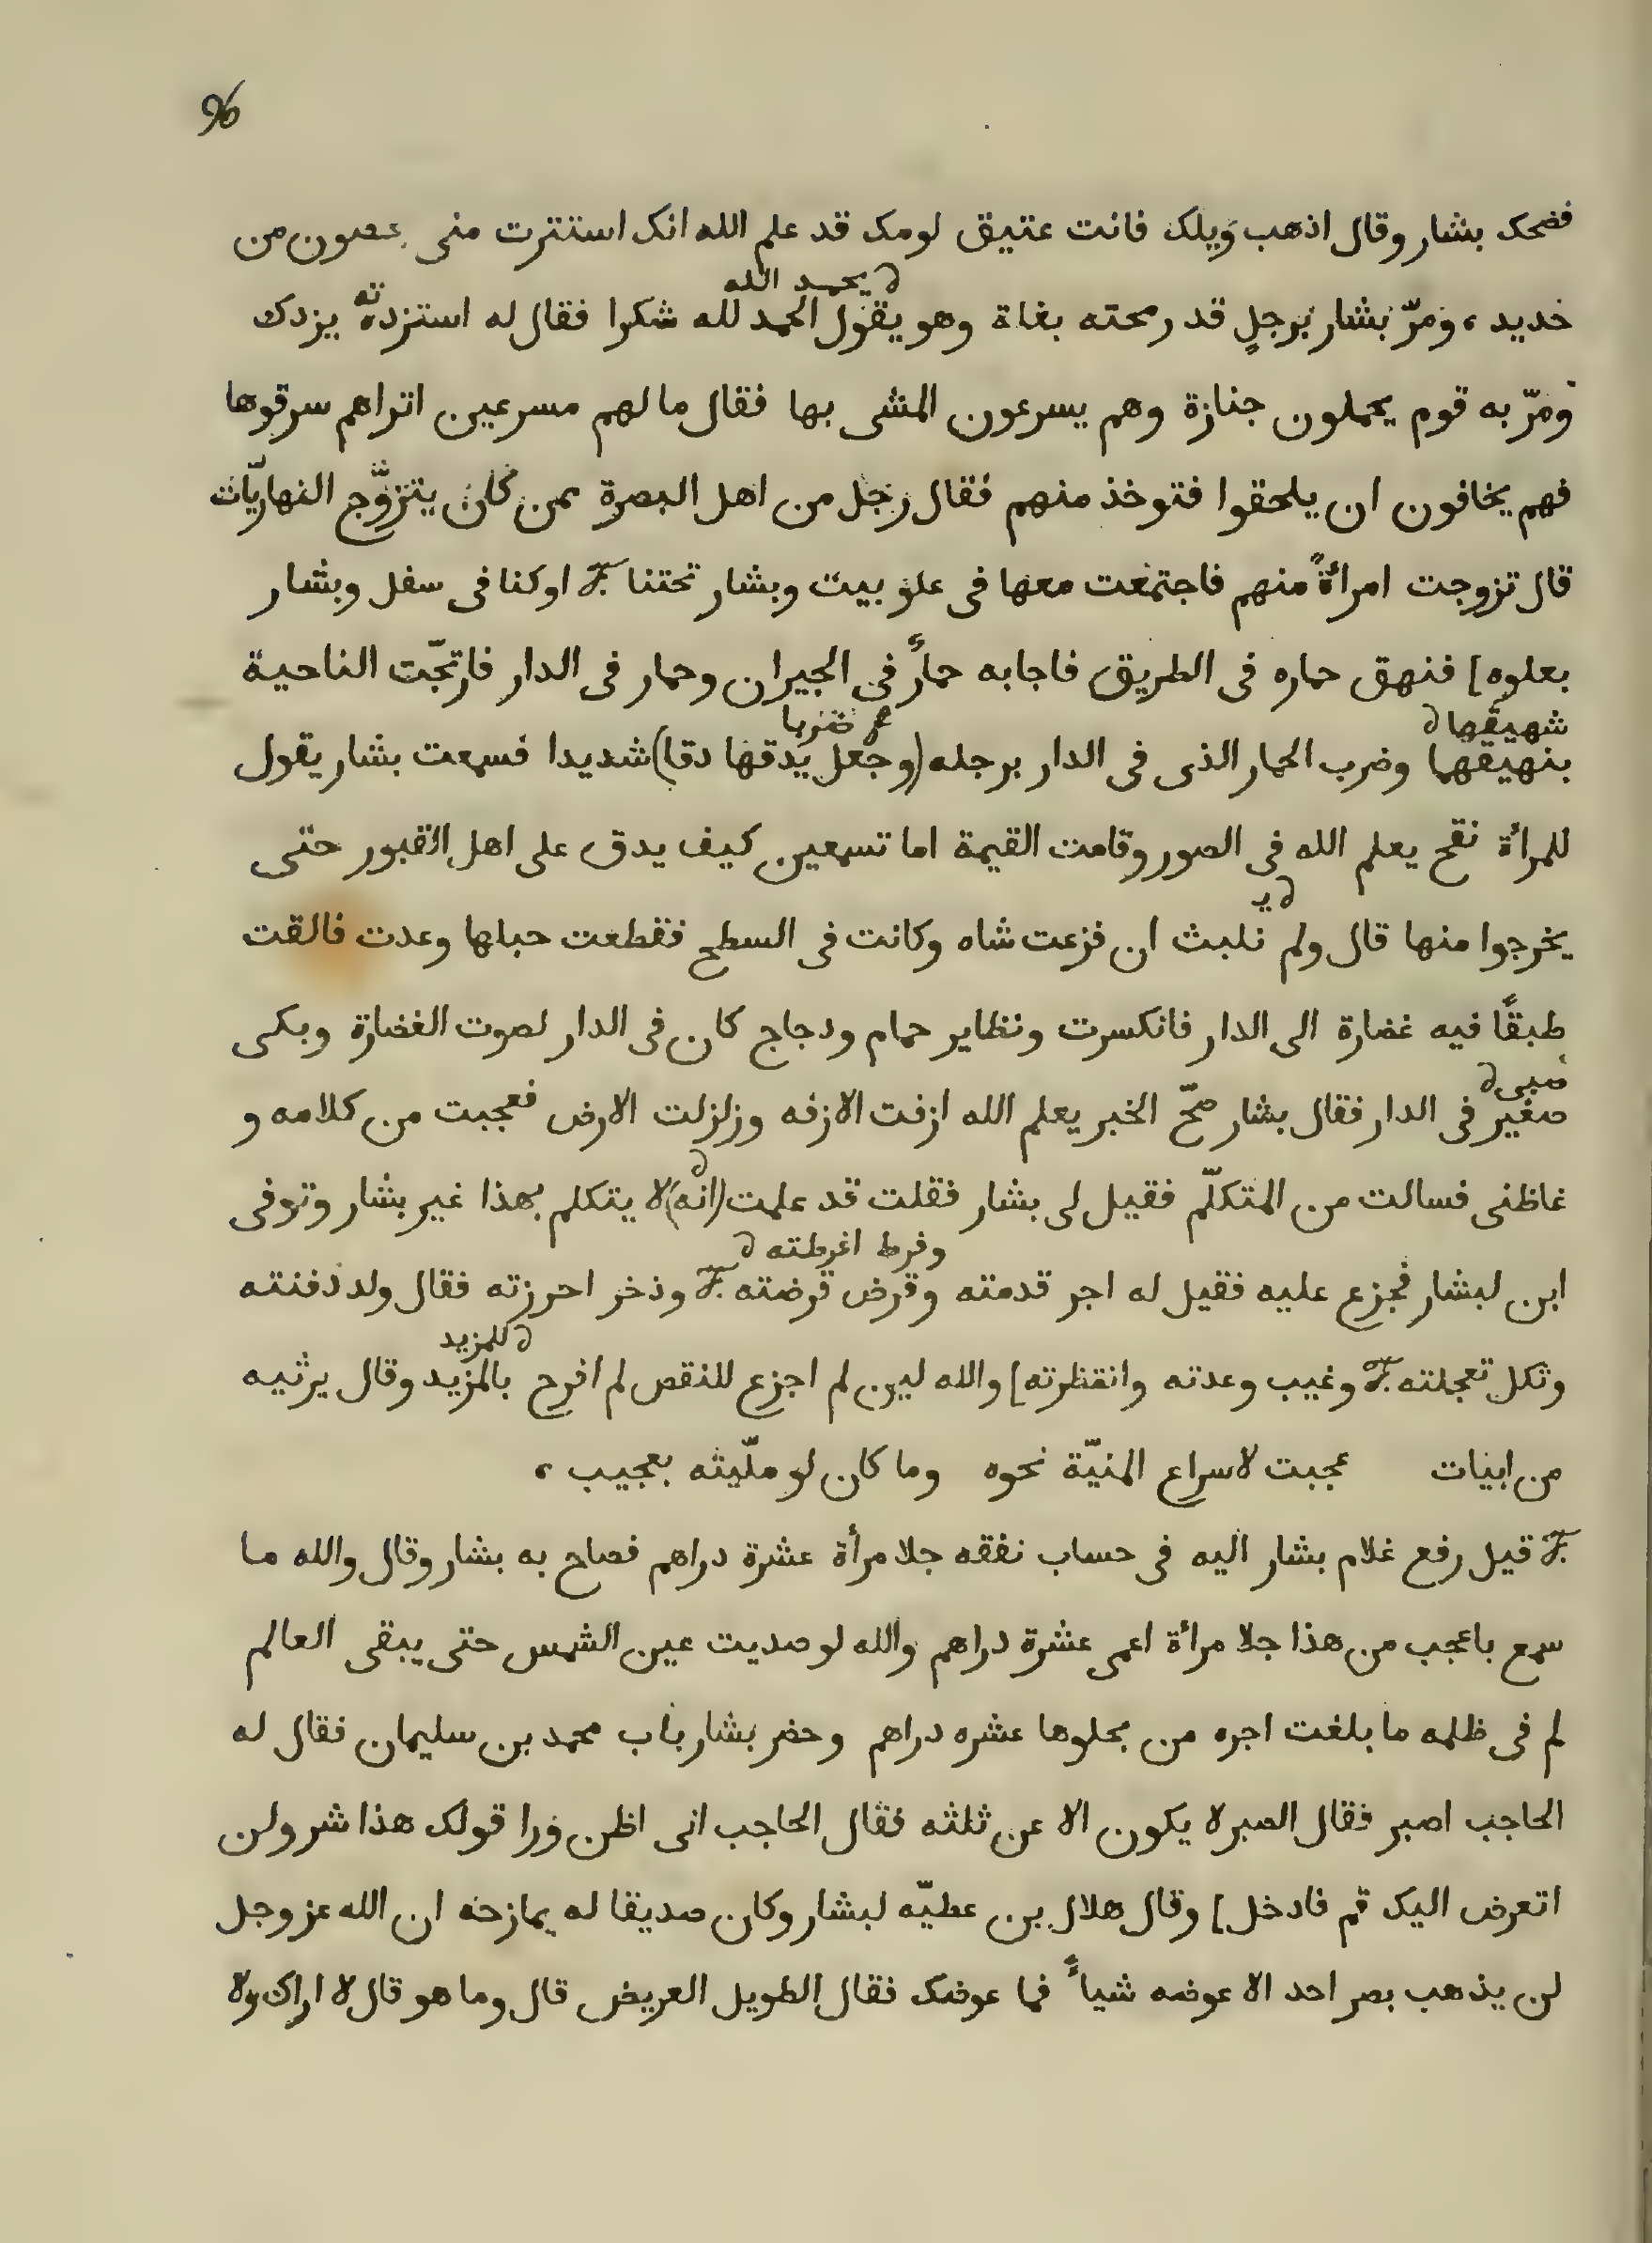 96
فضحك بشار وقال اذهب ويلك فانت عتيق لومك قد علم الله انك استترت منى بحصون من
∂ يحمد الله
حديد، ومرّ بشار برجلٍ قد رمحته بغلة وهو يقول الحمد لله شكرا فقال له استزده يزدك
ومرّ به قوم يحملون جنازة وهم يسرعون المشى بها فقال ما لهم مسرعين اتراهم سرقوها
فهم يخافون ان يلحقوا فتوخذ منهم فقال رجل من اهل البصرة ممن كان يتزوّج النهاريّات
قال تزوجت امرأةً منهم فاجتمعت معها فى علو بيت وبشار تحتنا او كنا فى سفل وبشار
بعلوه] فنهق حماره فى الطريق فاجابه حمارٌ فى الجيران وحمار فى الدار فارتجّت الناحية
شهيقها ∂ ضربا
بنهيقهما وضرب الحمار الذى فى الدار برجله (وجعل يدقها دقا) شديدا فسمعت بشار يقول
للمرأة نفخ يعلم الله فى الصور وقامت القيمة اما تسمعين كيف يدق على اهل القبور حتى
∂ يـ
يخرجوا منها قال ولم تلبث ان فزعت شاه وكانت فى السطح فقطعت حبلها وعدت فالقت
طبقًا فيه غضارة الى الدار فانكسرت وتطاير حمام ودجاج كان فى الدار لصوت الغضارة وبكى
صبى ∂
صغير فى الدار فقال بشار صحّ الخبر يعلم الله ازفت الازفه وزلزلت الارض فعجبت من كلامه و
غاظنى فسالت من المتكلّم فقيل لى بشار فقلت قد علمت (انه) لا يتكلم بهذا غير بشار وتوفى
وفرط افرطته ∂
ابن لبشار فجزع عليه فقيل له اجر قدمته وقرض قرضته وذخر احرزته فقال ولد دفنته
∂ للمزيد
وثكل تعجلته وغيب وعدته وانتظرته] والله لين لم اجزع للنقص لم افرح بالمزيد وقال يرثيه
من ابيات عجبت لاسراع المنيّة نحوه وما كان لو ملّيته بعجيب،
قيل رفع غلام بشار اليه فى حساب نفقه جلا مرأة عشرة دراهم فصاح به بشار وقال والله ما
سمع باعجب من هذا جلا مرأة اعمى عشرة دراهم والله لو صديت عين الشمس حتى يبقى العالم
لم فى ظلمه ما بلغت اجره من يجلوها عشره دراهم وحضر بشار باب محمد بن سليمان فقال له
الحاجب اصبر فقال الصبر لا يكون الا عن ثلثه فقال الحاجب انى اظن ورا قولك هذا شر ولن
اتعرض اليك قم فادخل] وقال هلال بن عطيّه لبشار وكان صديقا له يمازحه ان الله عز وجل
لن يذهب بصر احد الا عوضه شياً فما عوضك فقال الطويل العريض قال وما هو قال لا اراك ولا